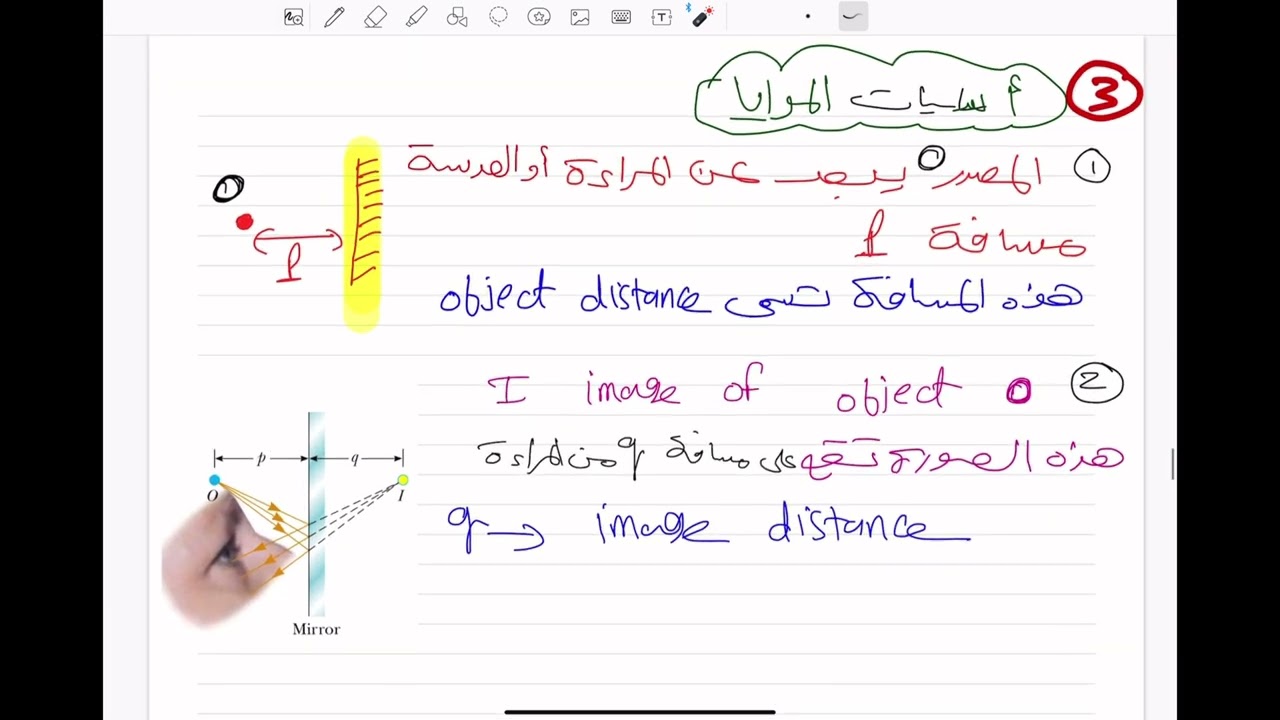 ③ أساسيات المرايا
① المصدر O يبعد عن المراءة أو العدسة
مسافة p
هذه المسافة تسمى object distance
② I image of object O
هذه الصورة تقع على مسافة q من المراءة
q → image distance
O
p
p q
O I
Mirror